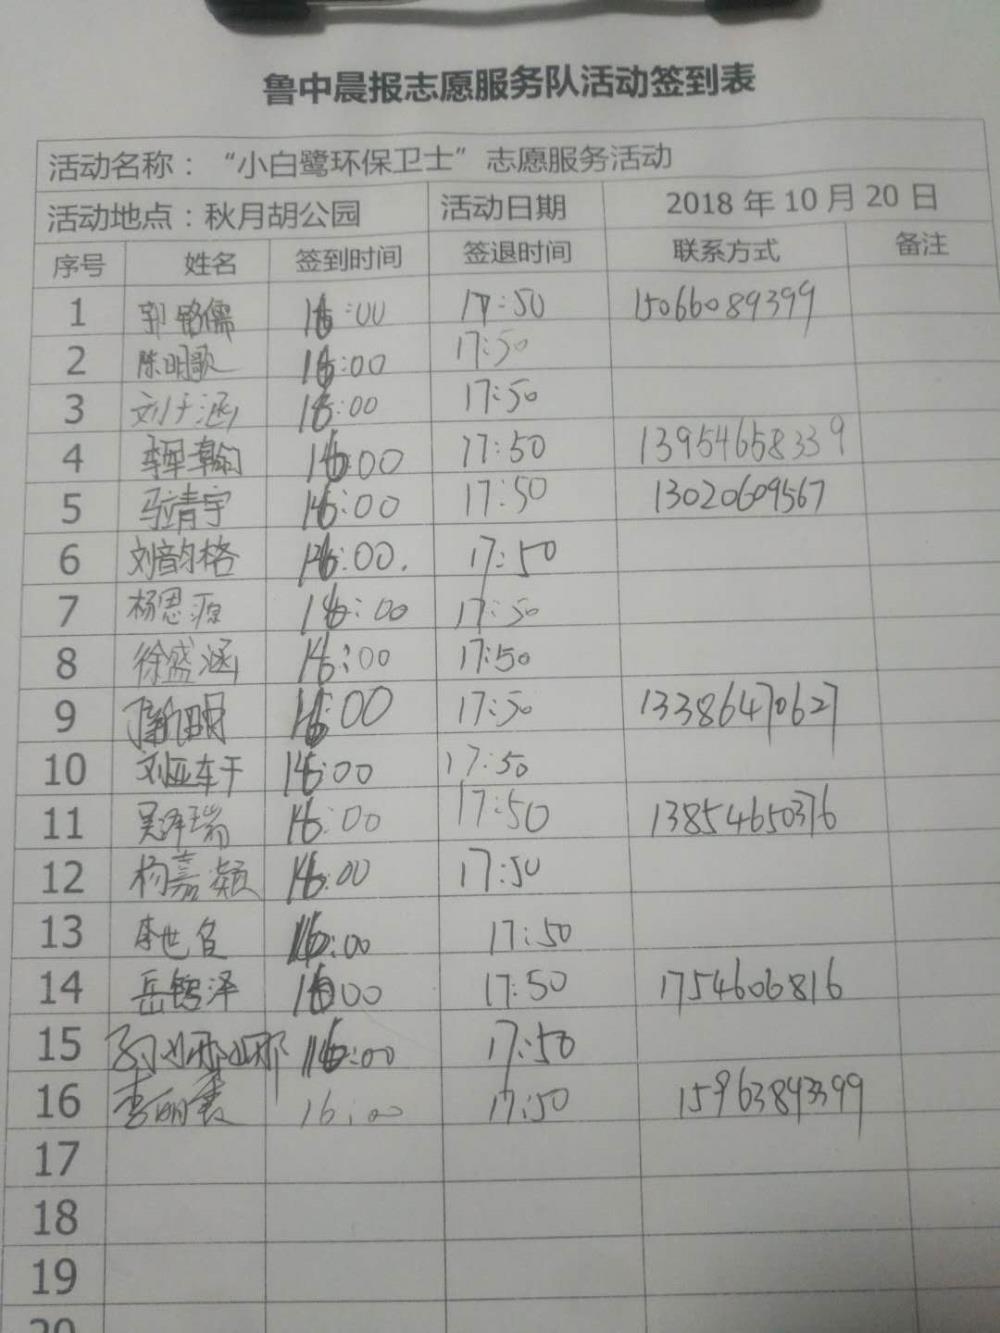 鲁中晨报志愿服务队活动签到表
活动名称：“小白鹭环保卫士”志愿服务活动
活动地点：秋月胡公园 活动日期 2018 年 10 月 20 日
序号 姓名 签到时间 签退时间 联系方式 备注
1 郭铭儒 16:00 17:50 15066089399
2 陈明歌 16:00 17:50
3 刘于涵 16:00 17:50
4 16:00 17:50 13954658339
5 马靖宇 16:00 17:50 13020609567
6 刘韵格 16:00. 17:50
7 杨恩源 16:00 17:50
8 徐盛涵 16:00 17:50
9 16:00 17:50 13386470627
10 16:00 17:50
11 吴泽瑞 16:00 17:50 13854650376
12 杨嘉颖 16:00 17:50
13 李世 16:00 17:50
14 岳铭泽 16:00 17:50 1754606816
15 16:00 17:50
16 16:00 17:50 15963893399
17
18
19
20